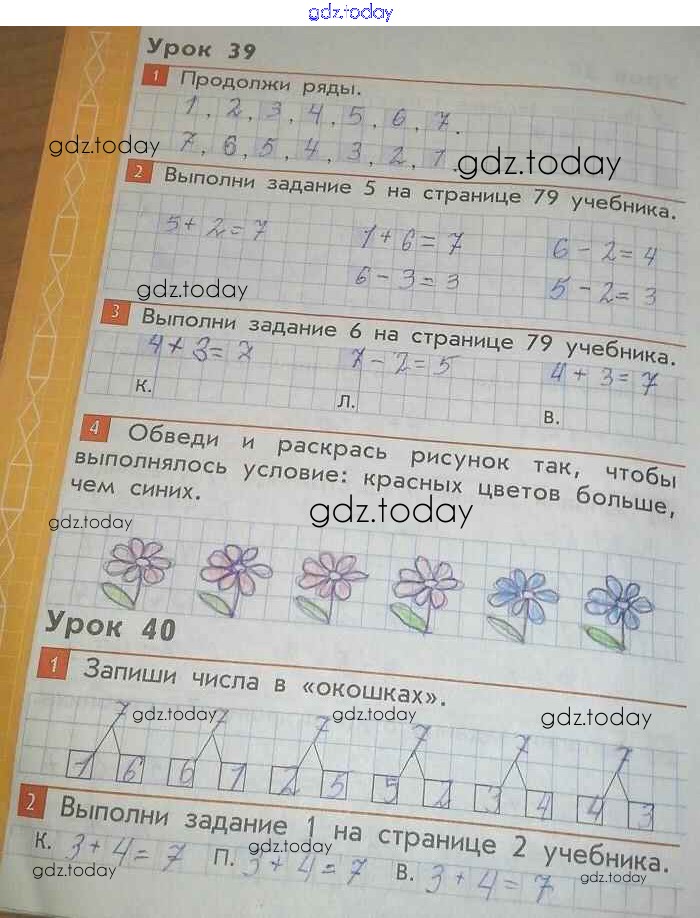 gdz.today
Урок 39
1 Продолжи ряды.
1, 2, 3, 4, 5, 6, 7.
gdz.today
7, 6, 5, 4, 3, 2, 1. gdz.today
2 Выполни задание 5 на странице 79 учебника.
5 + 2 = 7 1 + 6 = 7 6 - 2 = 4
gdz.today 6 - 3 = 3 5 - 2 = 3
3 Выполни задание 6 на странице 79 учебника.
4 + 3 = 7 7 - 2 = 5 4 + 3 = 7
К. Л. В.
4 Обведи и раскрась рисунок так, чтобы
выполнялось условие: красных цветов больше,
чем синих.
gdz.today gdz.today
Урок 40
1 Запиши числа в «окошках».
7 7 7 7 7 7
gdz.today gdz.today gdz.today
1 6 6 1 2 5 5 2 3 4 4 3
2 Выполни задание 1 на странице 2 учебника.
К. 3 + 4 = 7 П. 3 + 4 = 7 В. 3 + 4 = 7
gdz.today gdz.today gdz.today